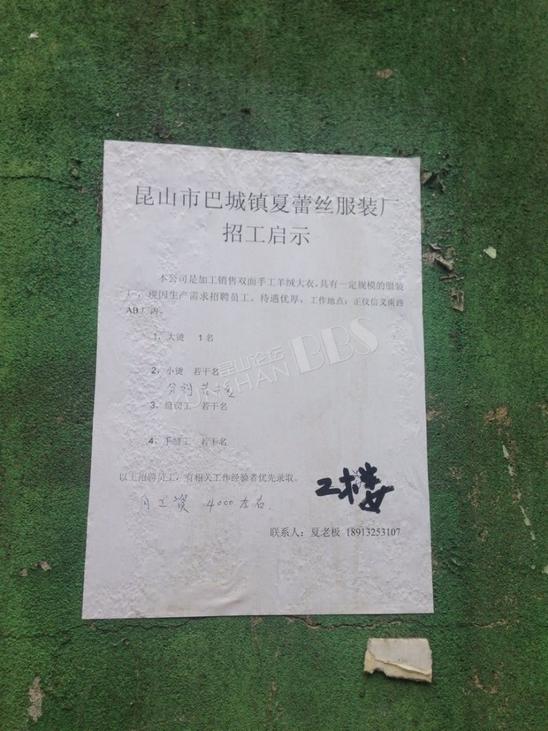 昆山市巴城镇夏蕾丝服装厂
招工启示
本公司是加工销售双面手工羊绒大衣，具有一定规模的服装
厂，现因生产需求招聘员工。待遇优厚。工作地点：正仪信义南路
AB厂内。
1，大烫 1名
2，小烫 若干名
分割 若干名
3，组 工 若干名
4，手缝工 若干名
以上招聘员工，有相关工作经验者优先录取。
月工资 4000左右.
二楼
联系人：夏老板 18913253107
昆山论坛
BBS